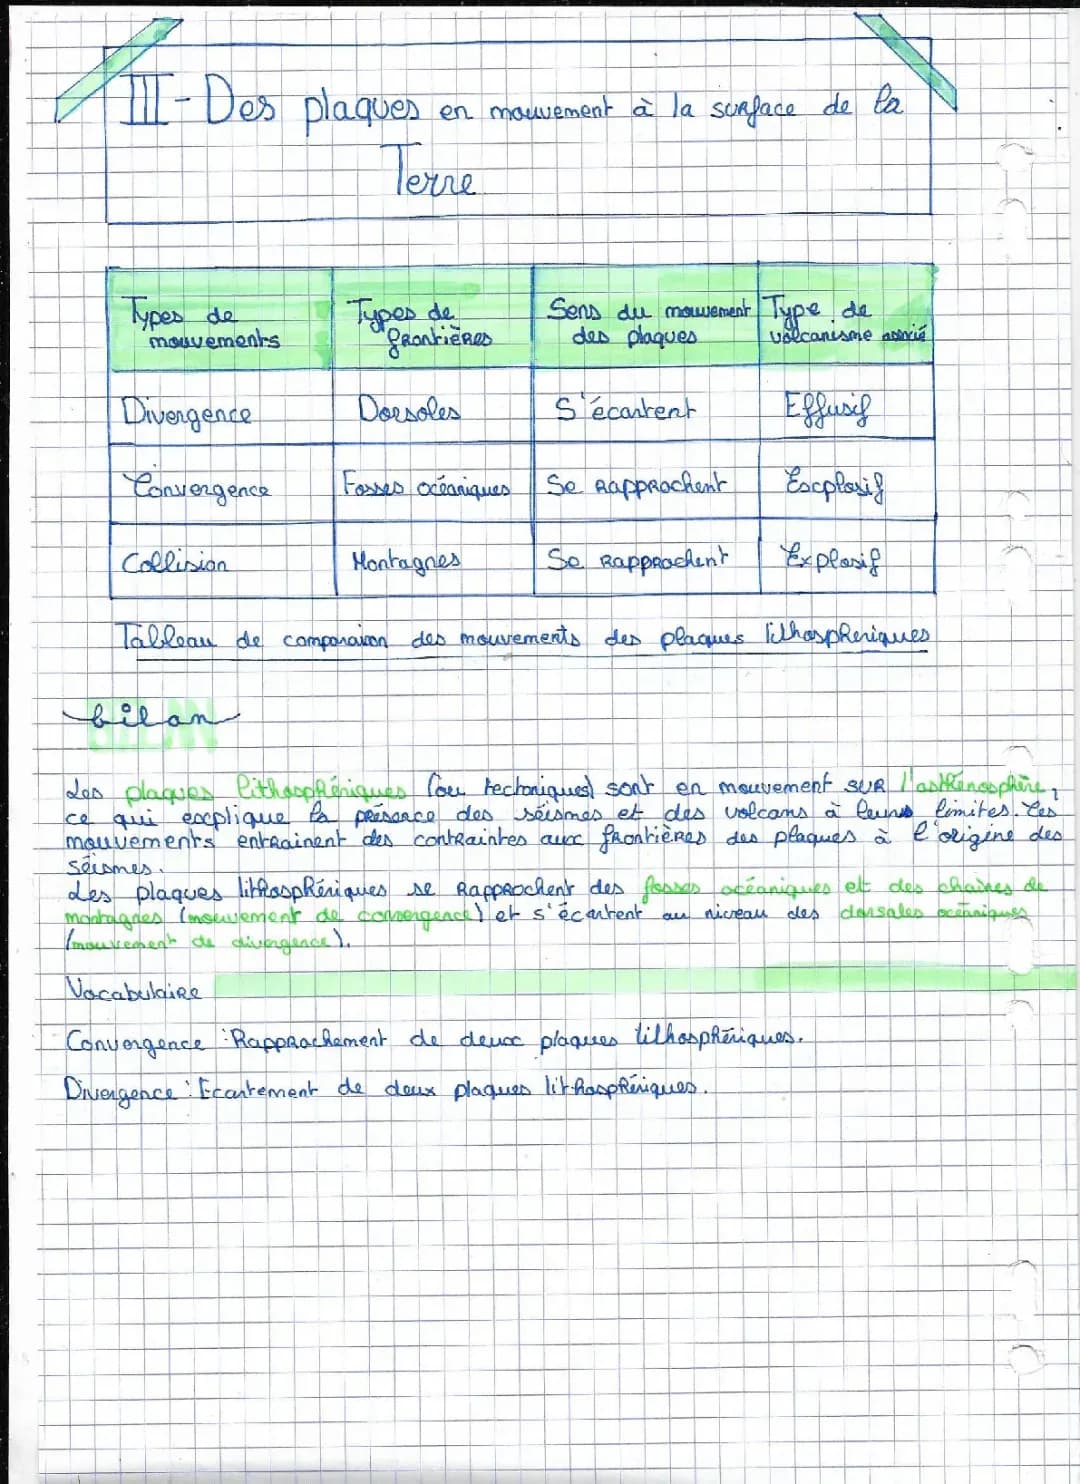 III - Des plaques en mouvement à la surface de la
Terre
Types de mouvements | Types de frontières | Sens du mouvement des plaques | Type de volcanisme associé
Divergence | Dorsoles | S'écartent | Effusif
Convergence | Fosses océaniques | Se rapprochent | Explosif
Collision | Montagnes | Se rapprochent | Explosif
Tableau de comparaison des mouvements des plaques lithosphériques
bilan
Les plaques lithosphériques (ou tectoniques) sont en mouvement sur l'asthénosphère,
ce qui explique la présence des séismes et des volcans à leurs limites. Ces
mouvements entrainent des contraintes aux frontières des plaques à l'origine des
séismes.
Les plaques lithosphériques se rapprochent des fosses océaniques et des chaines de
montagnes (mouvement de convergence) et s'écartent au niveau des dorsales océaniques
(mouvement de divergence).
Vocabulaire
Convergence : Rapprochement de deux plaques lithosphériques.
Divergence : Ecartement de deux plaques lithosphériques.